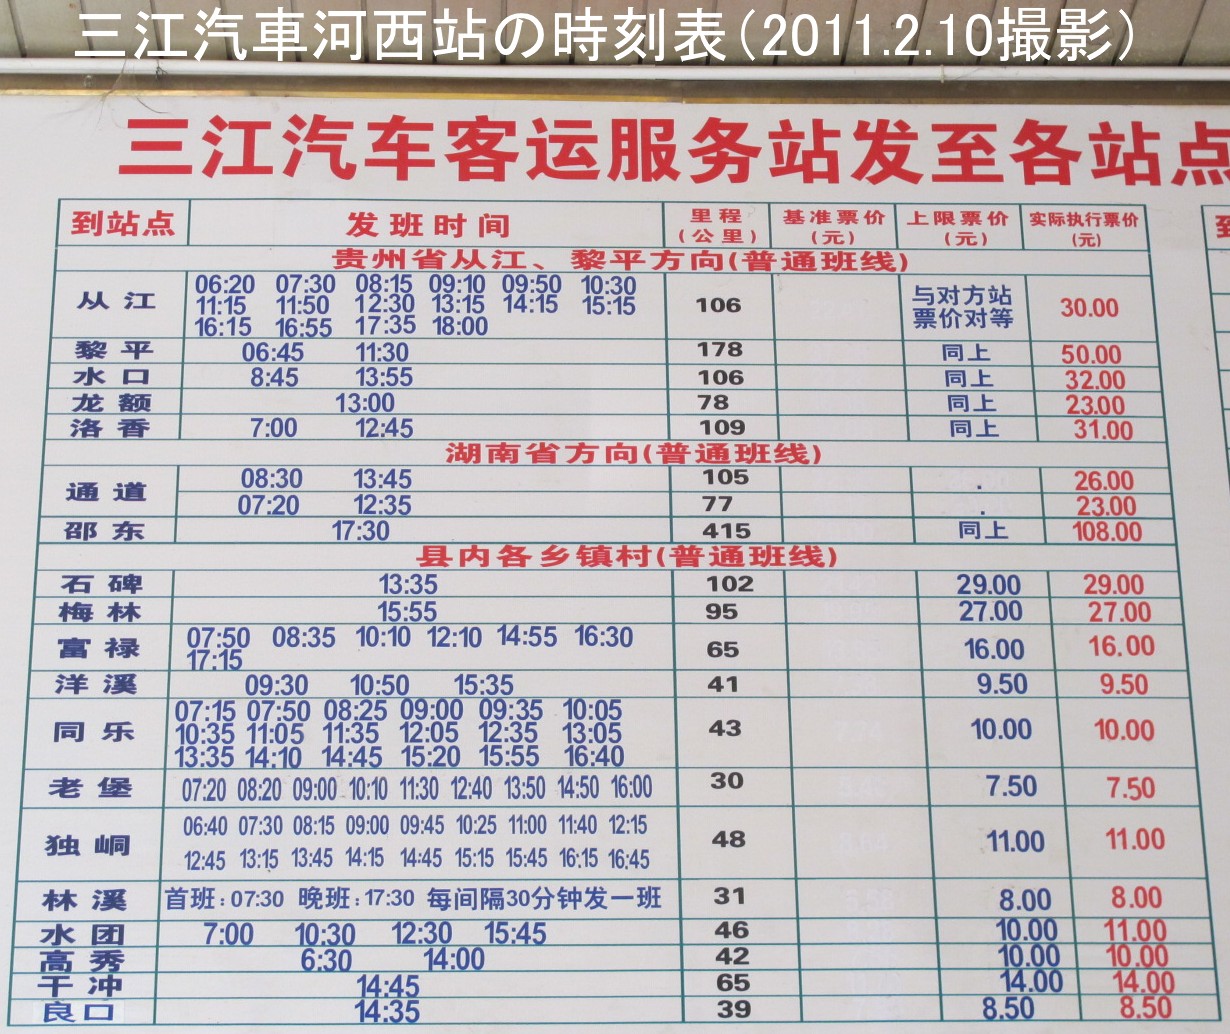 三江汽車河西站の時刻表(2011.2.10撮影)
三江汽车客运服务站发至各站点
到站点 发班时间 里程(公里) 基准票价(元) 上限票价(元) 实际执行票价(元)
贵州省从江、黎平方向(普通班线)
从江 06:20 07:30 08:15 09:10 09:50 10:30
11:15 11:50 12:30 13:15 14:15 15:15
16:15 16:55 17:35 18:00 106 与对方站票价对等 30.00
黎平 06:45 11:30 178 同上 50.00
水口 8:45 13:55 106 同上 32.00
龙额 13:00 78 同上 23.00
洛香 7:00 12:45 109 同上 31.00
湖南省方向(普通班线)
通道 08:30 13:45 105 . 26.00
07:20 12:35 77 . 23.00
邵东 17:30 415 同上 108.00
县内各乡镇村(普通班线)
石碑 13:35 102 29.00 29.00
梅林 15:55 95 27.00 27.00
富禄 07:50 08:35 10:10 12:10 14:55 16:30
17:15 65 16.00 16.00
洋溪 09:30 10:50 15:35 41 9.50 9.50
同乐 07:15 07:50 08:25 09:00 09:35 10:05
10:35 11:05 11:35 12:05 12:35 13:05
13:35 14:10 14:45 15:20 15:55 16:40 43 10.00 10.00
老堡 07:20 08:20 09:00 10:10 11:30 12:40 13:50 14:50 16:00 30 7.50 7.50
独峒 06:40 07:30 08:15 09:00 09:45 10:25 11:00 11:40 12:15
12:45 13:15 13:45 14:15 14:45 15:15 15:45 16:15 16:45 48 11.00 11.00
林溪 首班:07:30 晚班:17:30 每间隔30分钟发一班 31 8.00 8.00
水团 7:00 10:30 12:30 15:45 46 10.00 11.00
高秀 6:30 14:00 42 10.00 10.00
干冲 14:45 65 14.00 14.00
良口 14:35 39 8.50 8.50